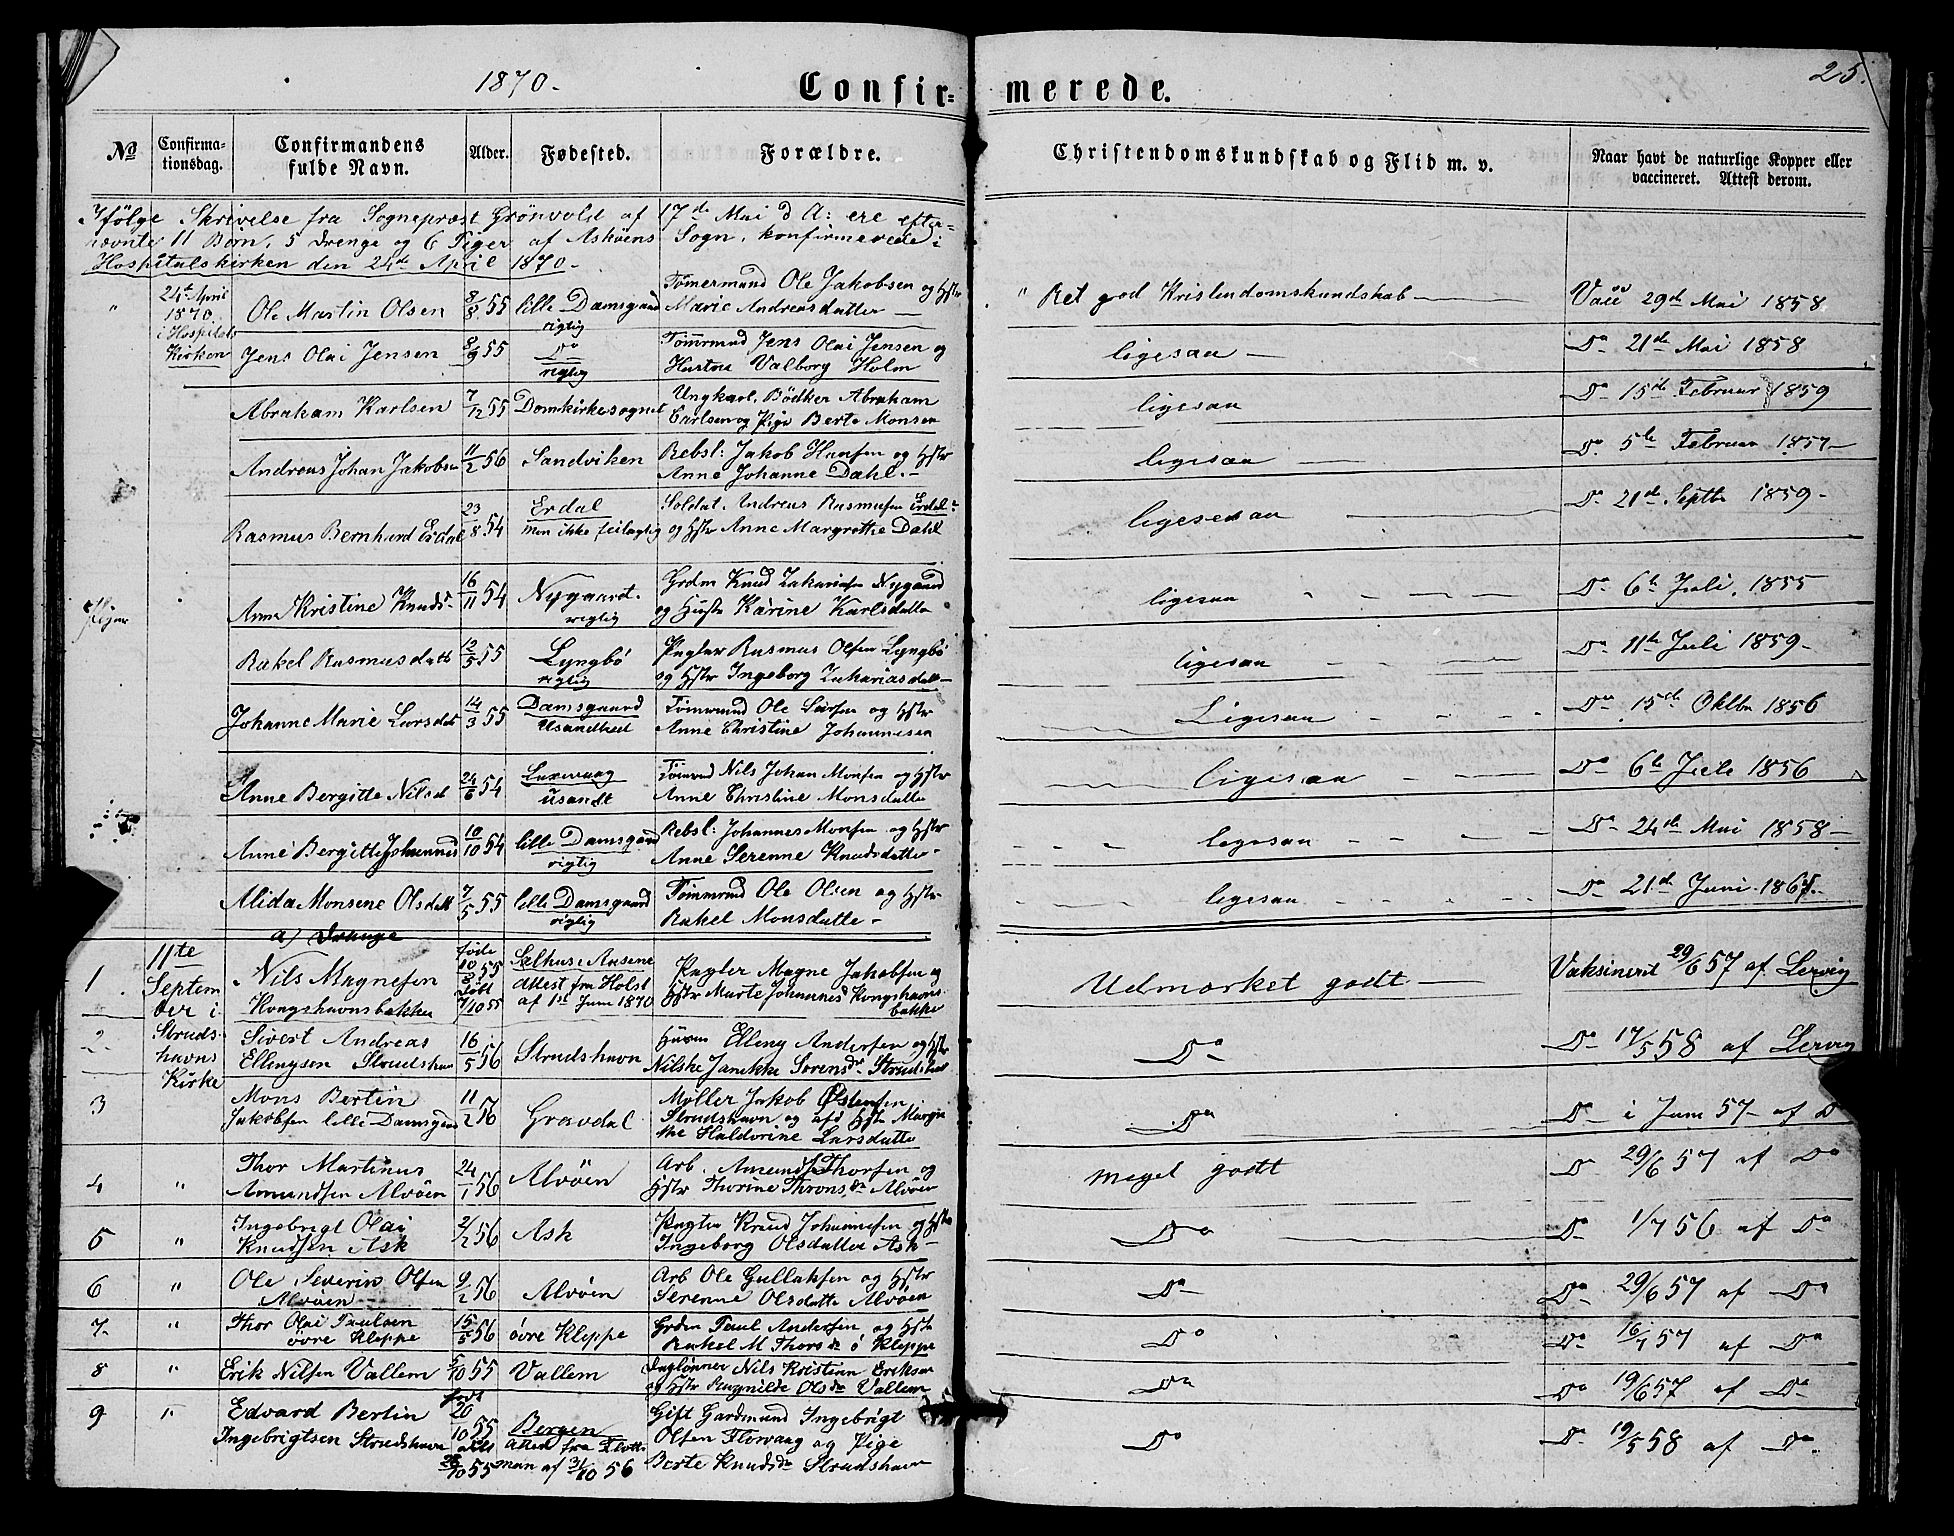 1870.
Confir=
merede.
25.
No
Confirma-
tionsdag.
Confirmandens
fulde Navn.
Alder.
Fødested.
Forældre.
Christendomskundskab og Flid m. v.
Naar havt de naturlige Kopper eller
vaccineret. Attest derom.
Ifölge Skrivelse fra Sognepræst Grönvold af 17de Mai d A: ere efter=
nævnte 11 Börn, 5 Drenge og 6 Piger af Askøens Sogn, konfirmerede i
Hospitalskirken den 24de April 1870.
" 24de April
1870
i Hospitals
Kirken
Ole Martin Olsen 8/8 55 lille Damsgaard
rigtig
Tömermand Ole Jakobsen og Hstr
Marie Andreasdatter
" Ret god Kristendomskundskab
29de Mai 1858
Jens Olai Jensen 8/9 55 Do
rigtig
Tömrmd Jens Olai Jensen og
Hustru Valborg Holm
ligesaa
Do 21de Mai 1858
Abraham Karlsen 7/12 55 Domkirkesognet
Ungkarl, Bödker Abraham
Carlsen og Pige Berte Monsen
ligesaa
Do 15de Februar 1859
Andreas Johan Jakobsen 11/2 56 Sandviken
Rebsl: Jakob Hansen og Hstr
Anne Johanne Dahl.
ligesaa
Do 5te Februar 1857
Rasmus Bernhard Erdal 23/8 54 Erdal
men ikke
Soldat. Andreas Rasmussen Erdal
og Hstr Anne Margrethe Dahl
ligesaa
Do 21de Septb 1859
Piger
Anne Kristine Knuds. 16/11 54 Nygaard.
rigtig
Grdm Knud Zakariasen Nygaard
og Hustr Karine Karlsdatter
ligesaa
Do 6te Juli, 1855
Rakel Rasmusdatter 12/5 55 Lyngbö
rigtig
Pagter Rasmus Olsen Lyngbö
og Hstr Ingeborg Zakariasdatter
ligesaa
Do 11te Juli 1859
Johanne Marie Larsdat 14/3 55 Damsgaard
Usandhed
Tömrmd Ole Larsen og Hstr
Anne Christine Johannesen
Ligesaa
Do 15de Oktbr 1856
Anne Bergitte Nilsd 24/6 54 Laxevaag
usandt
Tömrmd Nils Johan Monsen og Hstr
Anne Christine Monsdatter
ligesaa
Do 6te Juli 1856
Anne Bergitte Johannes 10/10 54 lille Damsgaard
rigtig
Rebsl: Johannes Monsen og Hstr
Anne Serenne Knudsdatter
ligesaa
Do 24de Mai 1858
Alida Monsene Olsdatt 7/5 55 lille Damsgaard
rigtig
Tömmrmd Ole Olsen og Hstr
Rakel Monsdatter
ligesaa
Do 21de Juni
a) Drenge
1. 11te
Septem
ber i
Struds-
havns
Kirke
Nils Magnesen
Kongshavnsbakken
föde
10/2 55
döbt
7/10 55
Salhus i Aasene
Attest fra Holst
af 1st Juni 1870
Pagter Magne Jakobsen og
Hstr Marte Johannesd Kongshavns-
bakke
Udmærket godt
Vaksineret 29/6 57 af Lervig
2. Sivert Andreas
Ellingsen Strudshavn
16/5 56 Strudshavn
Husm Elling Andersen og Hstr
Nilske Janikke Sorensdr Strudshavn
Do
Do 17/5 58 af Lervig
3 Mons Bertin
Jakobsen lille Damsgaard
11/2 56 Gravdal
Möller Jakob Østensen
Strudshavn og afd Hstr Margre
the Haldorine Larsdatter
Do
Do i Juni 57 af Do
4 " Thor Martinus
Amundsen Alvöen
24/1 56 Alvöen
Arb. Amund Thorsen og
Hstr Thorine Throns.dr Alvöen
meget godt
Do 29/6 57 af Do
5 " Ingebrigt Olai
Knudsen Ask
2/2 56 Ask
Pagter Knud Johannesen og Hstr
Ingeborg Olsdatter Ask
Do
Do 1/7 56 af Do
6 " Ole Severin Olsen
Alvöen
9/2 56 Alvöen
Arb Ole Gullaksen og Hstr
Serenne Olsdatter Alvöen
Do
Do 29/6 57 af Do
7. " Thor Olai Paulsen
övre Kleppe
15/5 56 övre Kleppe
Grdm Paul Andersen og Hstr
Rakel M Thorsdr ö Kleppe
Do
Do 16/7 57 af Do
8 " Erik Nilsen Vallem 5/10 55 Vallem
Daglönner Nils Kristian Eriksen
og Hstr Ragnilde Olsdr Vallem
Do
Do 19/6 57 af Do
9 " Edvard Bertin
Ingebrigtsen Strudshavn
födt
20/10 55
döbt
28/10 55
Bergen
Attest fra Flott
man af 31/10 56
Gift Gardmand Ingebrigt
Olsen Florvaag og Pige
Berte Knudsdr Strudshavn
Do
Do 19/5 58 af Do